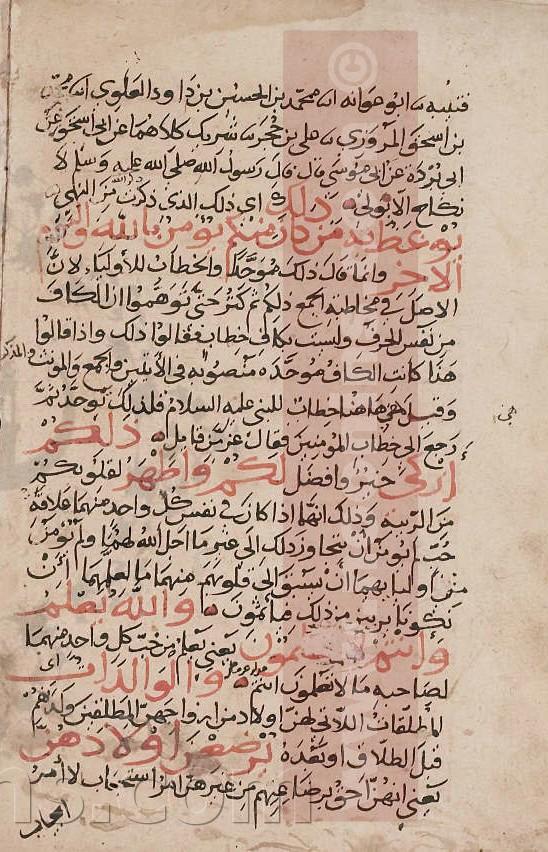 قتيبة ابو عوانه محمد بن الحسين بن داود العلوي
بن اسحق المروزي علي بن حجر شريك كلاهما عن ابي اسحق عن
ابي بردة عن ابي موسى قال قال رسول الله صلى الله عليه وسلم لا
نكاح الا بولي ذلك اي ذلك الذي ذكرت من النهي
يوعظ به من كان منكم يؤمن بالله واليوم
الاخر وانما قال ذلك موحدا والخطاب للأولياء لان
الاصل في مخاطبة الجمع ذلكم ثم كثر حتى توهموا ان الكاف
من نفس الحرف وليست بكاف خطاب فقالوا ذلك واذا قالوا
هذا كانت الكاف موحدة منصوبة في الاثنين والجمع والمونث والمذكر
وقيل هاهنا خطاب للنبي عليه السلام فلذلك توحد ثم
رجع الى خطاب المؤمنين فقال عز من قايل ذلكم
أزكى خير وافضل لكم وأطهر لقلوبكم
من الريبه وذلك انهما اذا كان في نفس كل واحد منهما علاقة
حب لم يؤمن ان يتجاوز ذلك الى غير ما احل الله لهما ولم يؤمن
من اوليائهما ان يسبق الى قلوبهم منهما ما لعلهما أن
يكونا بريين من ذلك فيأثمون والله يعلم
وانتم لا تعلمون يعني يعلم من حب كل واحد منهما
لصاحبه ما لا تعلمون انتم والوالدات اي
المطلقات اللاتي لهن اولاد من ازواجهن المطلقين ولدنهم
قبل الطلاق او بعده يرضعن اولادهن
يعني انهن احق برضاعهم من غيرهن امر استحباب لا امر
ايجاب